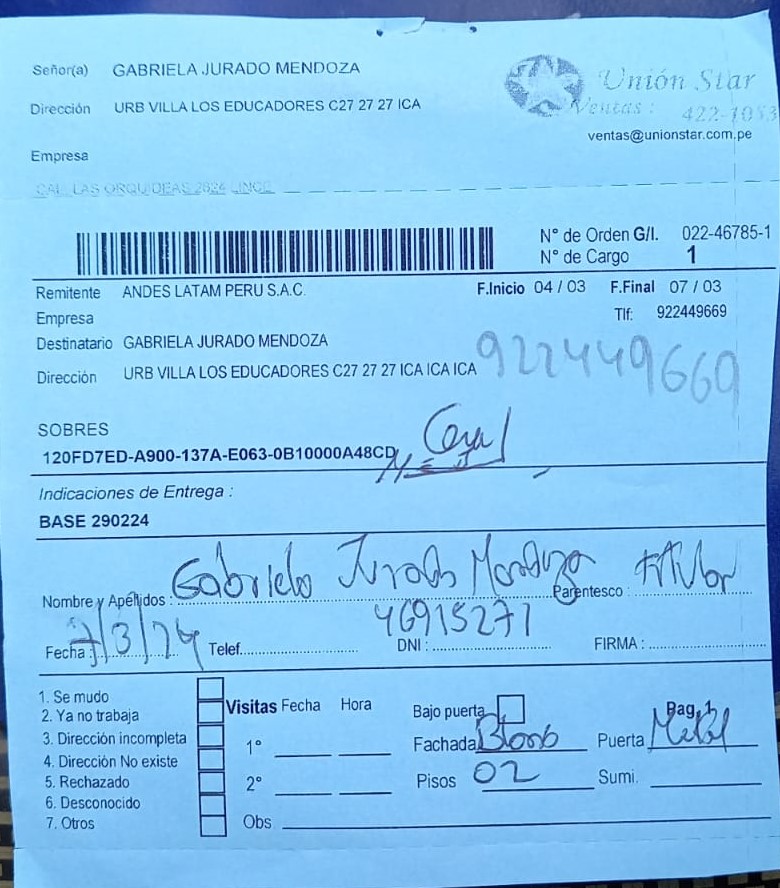 Señor(a) GABRIELA JURADO MENDOZA
Unión Star
Dirección URB VILLA LOS EDUCADORES C27 27 27 ICA
Ventas : 422-1053
ventas@unionstar.com.pe
Empresa
CAL LAS ORQUIDEAS 2624 LINCE
N° de Orden G/I. 022-46785-1
N° de Cargo 1
Remitente ANDES LATAM PERU S.A.C. F.Inicio 04 / 03 F.Final 07 / 03
Empresa Tlf: 922449669
Destinatario GABRIELA JURADO MENDOZA
922449669
Dirección URB VILLA LOS EDUCADORES C27 27 27 ICA ICA ICA
SOBRES
120FD7ED-A900-137A-E063-0B10000A48CD
Indicaciones de Entrega :
BASE 290224
Nombre y Apellidos : Gabriela Jurado Mendoza Parentesco : titular
Fecha : 7/3/24 Telef. DNI : 46915271 FIRMA :
1. Se mudo
2. Ya no trabaja
3. Dirección incompleta
4. Dirección No existe
5. Rechazado
6. Desconocido
7. Otros
Visitas Fecha Hora
1°
2°
Obs
Bajo puerta
Pag. 1
Fachada Puerta Metal
Pisos 02 Sumi.